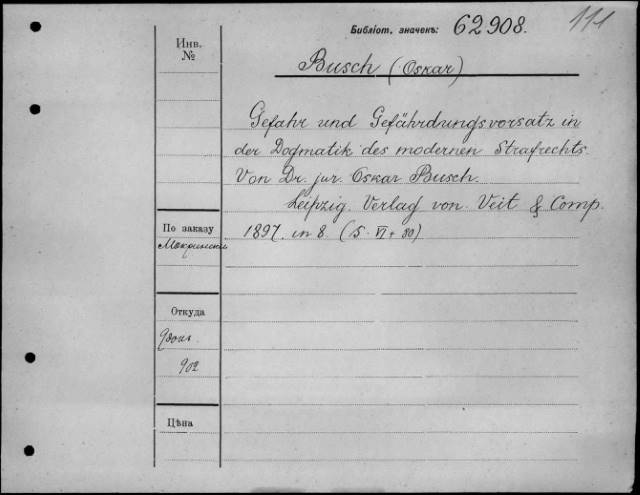 Библіот. значекъ: 62908. 111
Инв. №
Busch (Oskar)
Gefahr und Gefährdungsvorsatz in
der Dogmatik des modernen Strafrechts.
Von Dr. jur. Oskar Busch.
Leipzig. Verlag von Veit & Comp.
1897. in 8. (5. VI + 80)
По заказу
Откуда
902
Цѣна